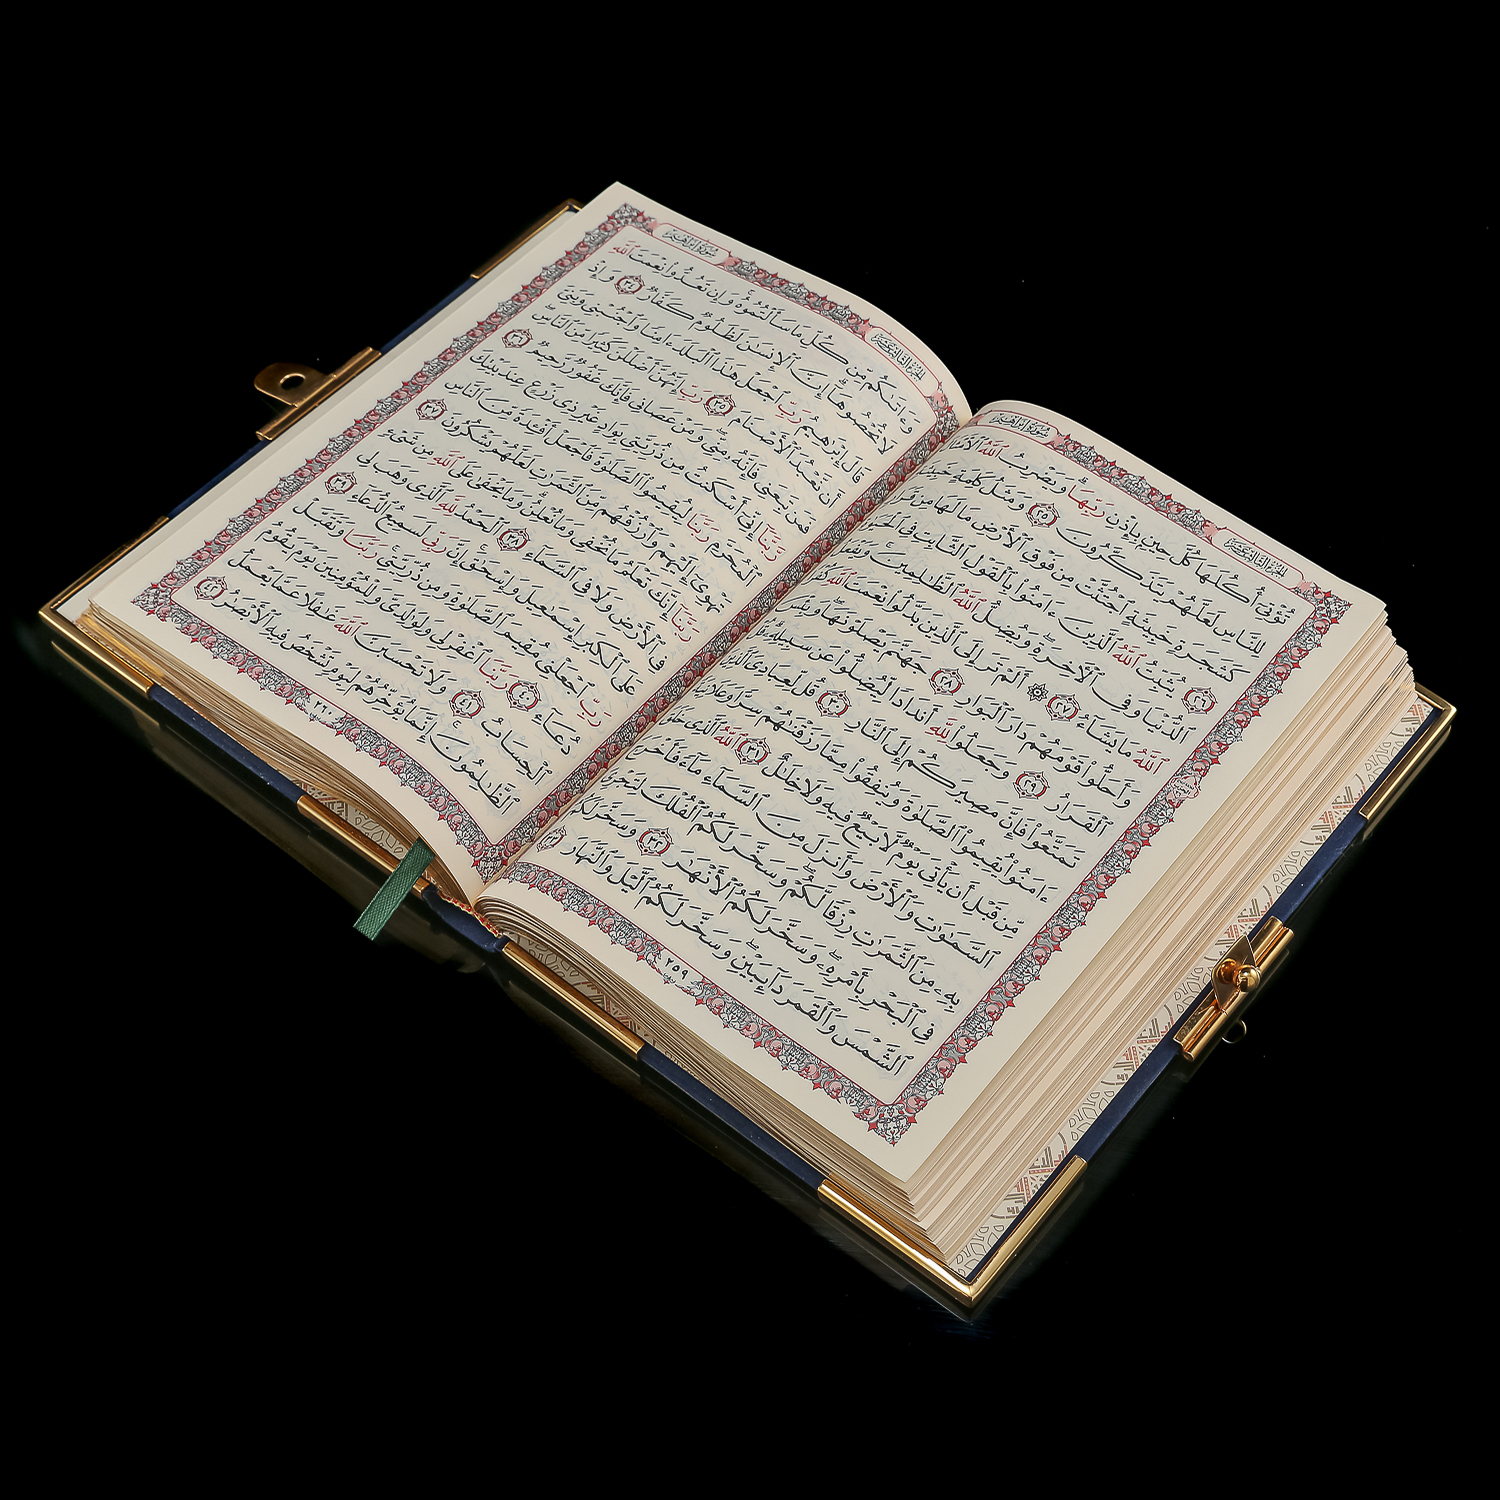 سورة إبراهيم
الجزء الثالث عشر
تُؤْتِىٓ أُكُلَهَا كُلَّ حِينٍۭ بِإِذْنِ رَبِّهَا ۗ وَيَضْرِبُ ٱللَّهُ ٱلْأَمْثَالَ
لِلنَّاسِ لَعَلَّهُمْ يَتَذَكَّرُونَ ٢٥ وَمَثَلُ كَلِمَةٍ خَبِيثَةٍ
كَشَجَرَةٍ خَبِيثَةٍ ٱجْتُثَّتْ مِن فَوْقِ ٱلْأَرْضِ مَا لَهَا مِن قَرَارٍ
٢٦ يُثَبِّتُ ٱللَّهُ ٱلَّذِينَ ءَامَنُوا۟ بِٱلْقَوْلِ ٱلثَّابِتِ فِى ٱلْحَيَوٰةِ
ٱلدُّنْيَا وَفِى ٱلْءَاخِرَةِ ۖ وَيُضِلُّ ٱللَّهُ ٱلظَّٰلِمِينَ ۚ وَيَفْعَلُ
ٱللَّهُ مَا يَشَآءُ ٢٧ ۞ أَلَمْ تَرَ إِلَى ٱلَّذِينَ بَدَّلُوا۟ نِعْمَتَ ٱللَّهِ كُفْرًا
وَأَحَلُّوا۟ قَوْمَهُمْ دَارَ ٱلْبَوَارِ ٢٨ جَهَنَّمَ يَصْلَوْنَهَا ۖ وَبِئْسَ
ٱلْقَرَارُ ٢٩ وَجَعَلُوا۟ لِلَّهِ أَندَادًا لِّيُضِلُّوا۟ عَن سَبِيلِهِۦ ۗ قُلْ
تَمَتَّعُوا۟ فَإِنَّ مَصِيرَكُمْ إِلَى ٱلنَّارِ ٣٠ قُل لِّعِبَادِىَ ٱلَّذِينَ
ءَامَنُوا۟ يُقِيمُوا۟ ٱلصَّلَوٰةَ وَيُنفِقُوا۟ مِمَّا رَزَقْنَٰهُمْ سِرًّا وَعَلَانِيَةً
مِّن قَبْلِ أَن يَأْتِىَ يَوْمٌ لَّا بَيْعٌ فِيهِ وَلَا خِلَٰلٌ ٣١ ٱللَّهُ ٱلَّذِى خَلَقَ
ٱلسَّمَٰوَٰتِ وَٱلْأَرْضَ وَأَنزَلَ مِنَ ٱلسَّمَآءِ مَآءً فَأَخْرَجَ
بِهِۦ مِنَ ٱلثَّمَرَٰتِ رِزْقًا لَّكُمْ ۖ وَسَخَّرَ لَكُمُ ٱلْفُلْكَ لِتَجْرِىَ
فِى ٱلْبَحْرِ بِأَمْرِهِۦ ۖ وَسَخَّرَ لَكُمُ ٱلْأَنْهَٰرَ ٣٢ وَسَخَّرَ لَكُمُ
ٱلشَّمْسَ وَٱلْقَمَرَ دَآئِبَيْنِ ۖ وَسَخَّرَ لَكُمُ ٱلَّيْلَ وَٱلنَّهَارَ ٣٣
٢٥٩
سورة إبراهيم
الجزء الثالث عشر
وَءَاتَىٰكُم مِّن كُلِّ مَا سَأَلْتُمُوهُ ۚ وَإِن تَعُدُّوا۟ نِعْمَتَ ٱللَّهِ
لَا تُحْصُوهَآ ۗ إِنَّ ٱلْإِنسَٰنَ لَظَلُومٌ كَفَّارٌ ٣٤ وَإِذْ
قَالَ إِبْرَٰهِيمُ رَبِّ ٱجْعَلْ هَٰذَا ٱلْبَلَدَ ءَامِنًا وَٱجْنُبْنِى وَبَنِىَّ
أَن نَّعْبُدَ ٱلْأَصْنَامَ ٣٥ رَبِّ إِنَّهُنَّ أَضْلَلْنَ كَثِيرًا مِّنَ ٱلنَّاسِ ۖ
فَمَن تَبِعَنِى فَإِنَّهُۥ مِنِّى ۖ وَمَنْ عَصَانِى فَإِنَّكَ غَفُورٌ رَّحِيمٌ ٣٦
رَّبَّنَآ إِنِّىٓ أَسْكَنتُ مِن ذُرِّيَّتِى بِوَادٍ غَيْرِ ذِى زَرْعٍ عِندَ بَيْتِكَ
ٱلْمُحَرَّمِ رَبَّنَا لِيُقِيمُوا۟ ٱلصَّلَوٰةَ فَٱجْعَلْ أَفْـِٔدَةً مِّنَ ٱلنَّاسِ
تَهْوِىٓ إِلَيْهِمْ وَٱرْزُقْهُم مِّنَ ٱلثَّمَرَٰتِ لَعَلَّهُمْ يَشْكُرُونَ ٣٧
رَبَّنَآ إِنَّكَ تَعْلَمُ مَا نُخْفِى وَمَا نُعْلِنُ ۗ وَمَا يَخْفَىٰ عَلَى ٱللَّهِ مِن شَىْءٍ
فِى ٱلْأَرْضِ وَلَا فِى ٱلسَّمَآءِ ٣٨ ٱلْحَمْدُ لِلَّهِ ٱلَّذِى وَهَبَ لِى
عَلَى ٱلْكِبَرِ إِسْمَٰعِيلَ وَإِسْحَٰقَ ۚ إِنَّ رَبِّى لَسَمِيعُ ٱلدُّعَآءِ ٣٩
رَبِّ ٱجْعَلْنِى مُقِيمَ ٱلصَّلَوٰةِ وَمِن ذُرِّيَّتِى ۚ رَبَّنَا وَتَقَبَّلْ
دُعَآءِ ٤٠ رَبَّنَا ٱغْفِرْ لِى وَلِوَٰلِدَىَّ وَلِلْمُؤْمِنِينَ يَوْمَ يَقُومُ
ٱلْحِسَابُ ٤١ وَلَا تَحْسَبَنَّ ٱللَّهَ غَٰفِلًا عَمَّا يَعْمَلُ
ٱلظَّٰلِمُونَ ۚ إِنَّمَا يُؤَخِّرُهُمْ لِيَوْمٍ تَشْخَصُ فِيهِ ٱلْأَبْصَٰرُ ٤٢
٢٦٠